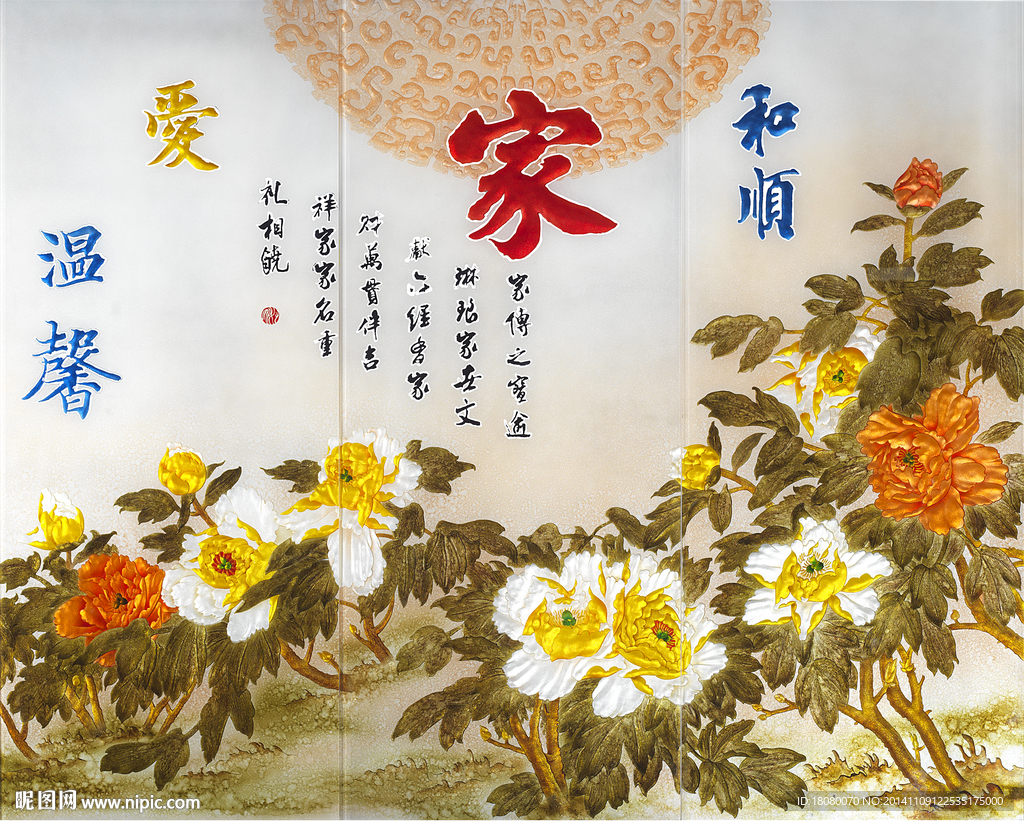 和順
家
家傳之寶逾
琳琅家文
獻六經香家
财萬貫伴吉
祥家家名重
礼相饒
愛
温馨
昵图网 www.nipic.com
ID:18080070 NO:20141109122535175000